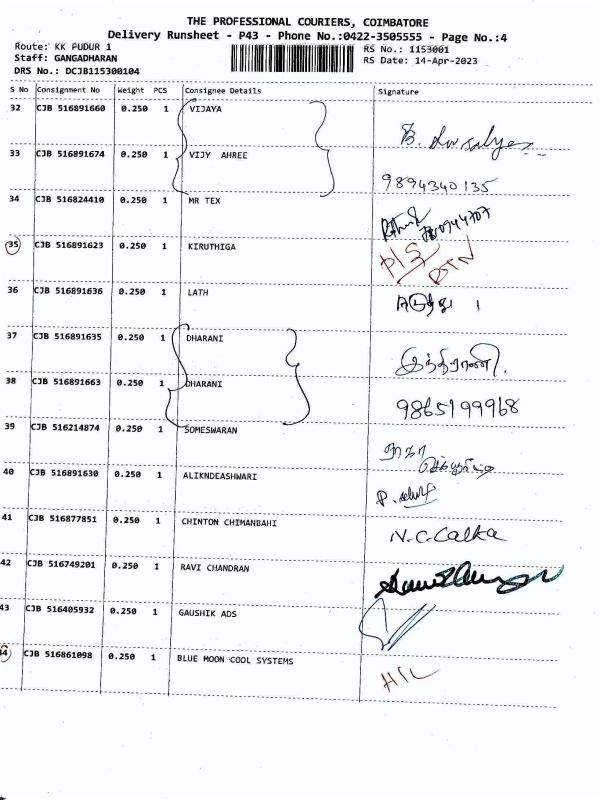 THE PROFESSIONAL COURIERS, COIMBATORE
Delivery Runsheet - P43 - Phone No.:0422-3505555 - Page No.:4
Route: KK PUDUR 1 RS No.: 1153001
Staff: GANGADHARAN RS Date: 14-Apr-2023
DRS No.: DCJB115300104
S No Consignment No Weight PCS Consignee Details Signature
32 CJB 516891660 0.250 1 VIJAYA
33 CJB 516891674 0.250 1 VIJY AHREE
9894340135
34 CJB 516824410 0.250 1 MR TEX
35 CJB 516891623 0.250 1 KIRUTHIGA P/S
RTN
36 CJB 516891636 0.250 1 LATH
37 CJB 516891635 0.250 1 DHARANI இந்திராணி.
38 CJB 516891663 0.250 1 DHARANI 9865199968
39 CJB 516214874 0.250 1 SOMESWARAN
40 CJB 516891630 0.250 1 ALIKNDEASHWARI
41 CJB 516877851 0.250 1 CHINTON CHIMANBAHI N.C.Calka
42 CJB 516749201 0.250 1 RAVI CHANDRAN
43 CJB 516405932 0.250 1 GAUSHIK ADS
44 CJB 516861098 0.250 1 BLUE MOON COOL SYSTEMS